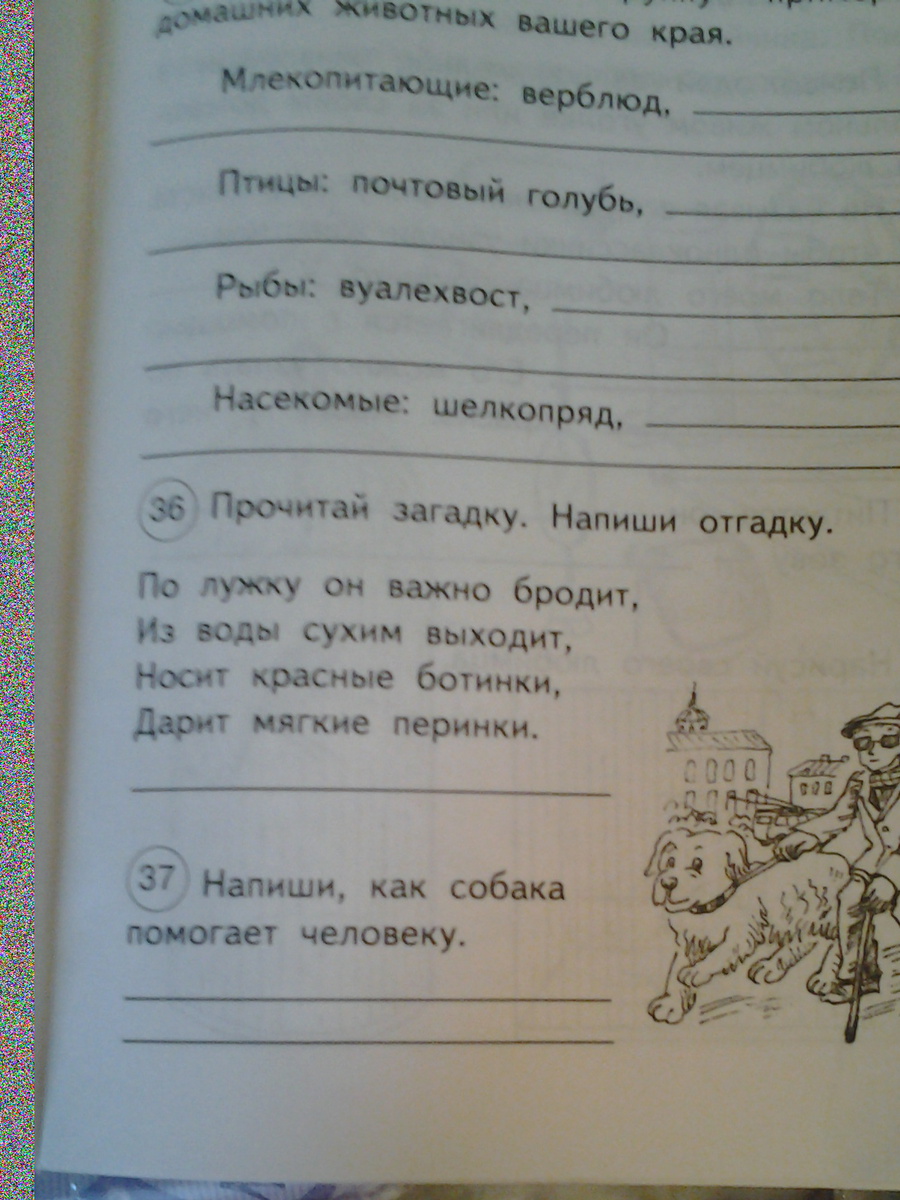 домашних животных вашего края.
Млекопитающие: верблюд,
Птицы: почтовый голубь,
Рыбы: вуалехвост,
Насекомые: шелкопряд,
36 Прочитай загадку. Напиши отгадку.
По лужку он важно бродит,
Из воды сухим выходит,
Носит красные ботинки,
Дарит мягкие перинки.
37 Напиши, как собака
помогает человеку.